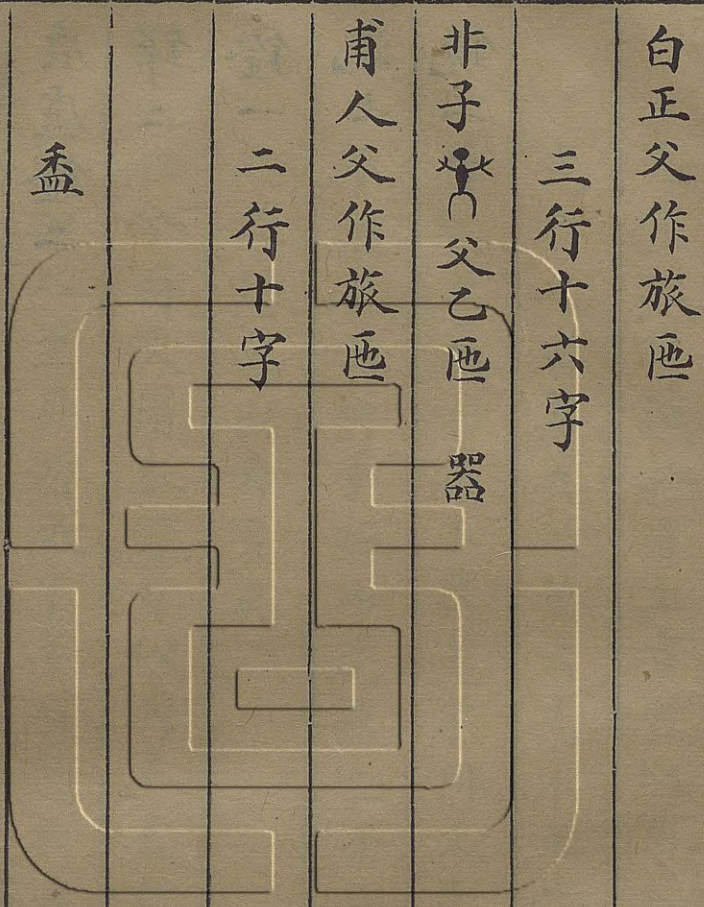 白正父作旅匜
三行十六字
非子父乙匜 器
甫人父作旅匜
二行十字
盉